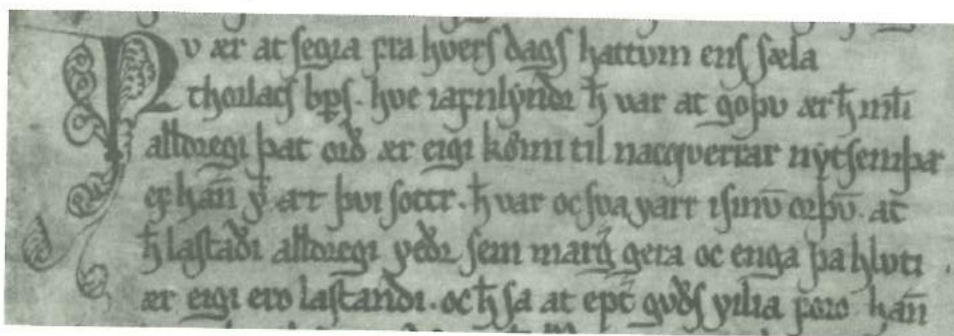 Nv ær at ſegia fra hverſ dagſ hattvm enſ ſæla
thorlacſ bp̅ſ. hve iafnlyndꝛ h̅ var at goþv ær h̅ mlti
alldregi þat orð ær eigi kømi til nacqverrar nytſemþar
ef han̅ v̓ ar þvi ſottr. h̅ var oc ſva varr iſinv̅ orþv̅. at
h̅ laſtaði alldregi veðꝛ ſem marg̓ gera oc enga þa hlvti
ær eigi erv laſtandi. oc h̅ ſa at ept̓ gvðſ vilia foro han̅